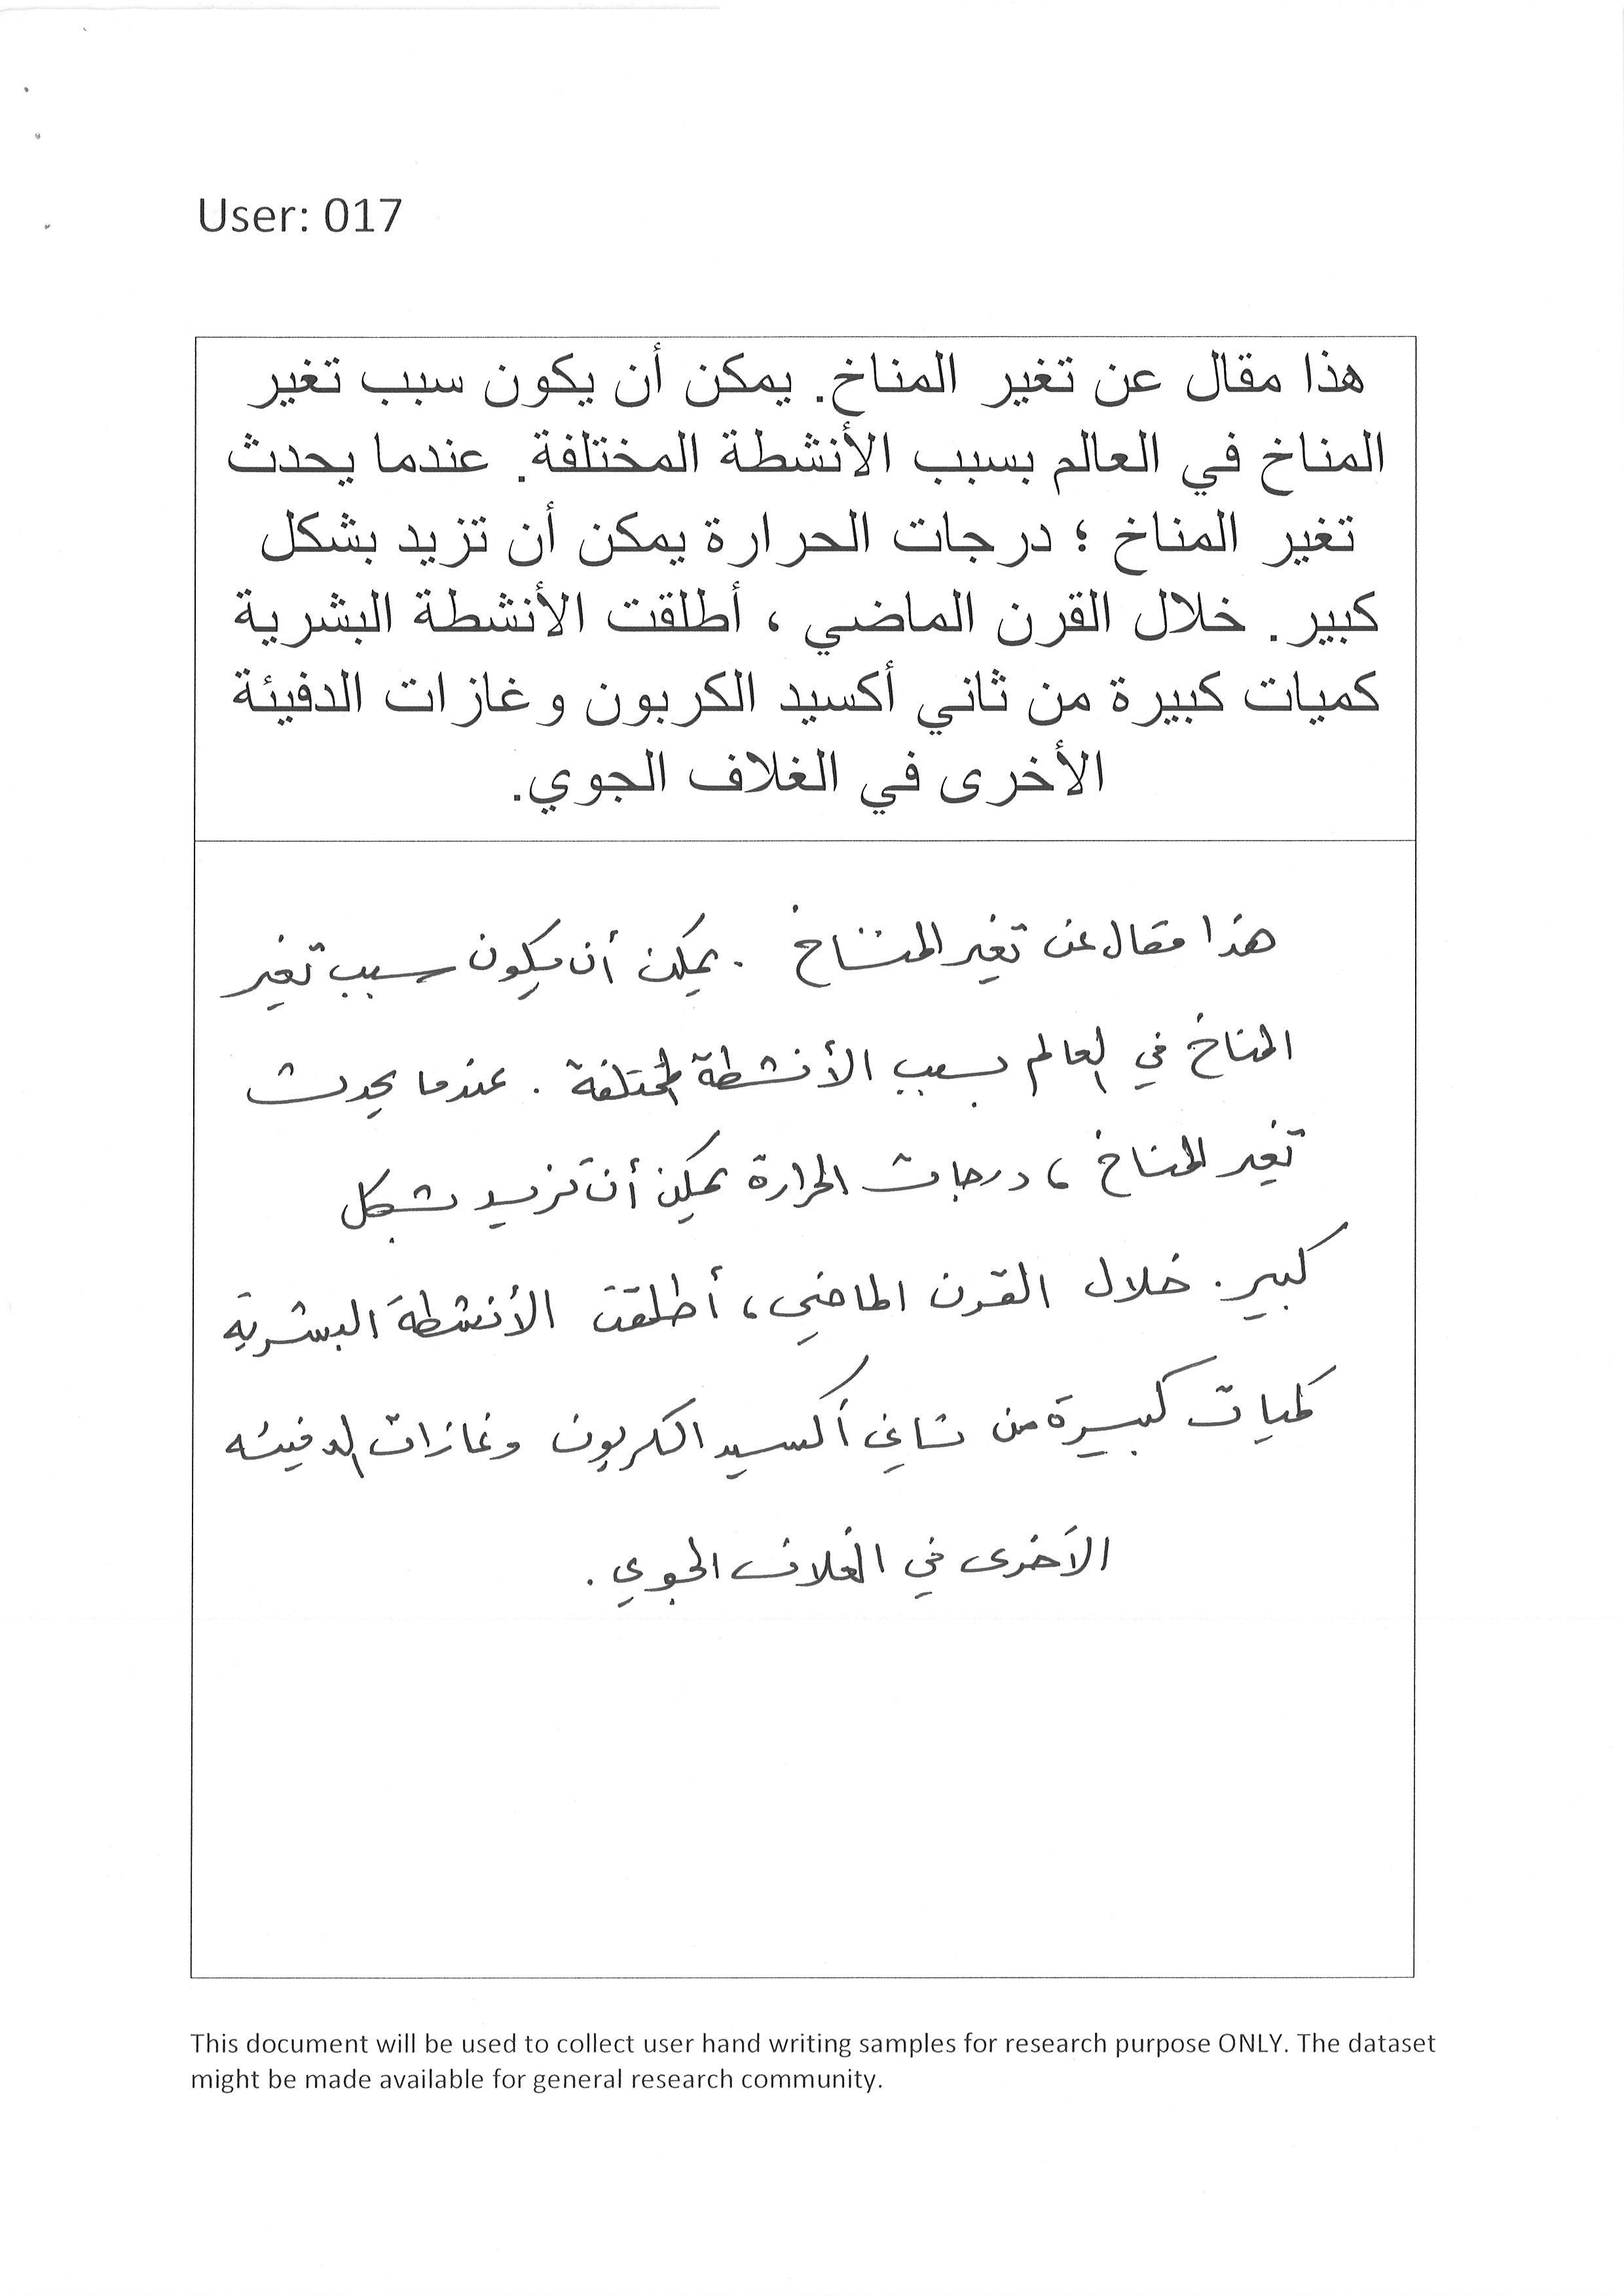 User: 017
هذا مقال عن تغير المناخ. يمكن أن يكون سبب تغير
المناخ في العالم بسبب الأنشطة المختلفة. عندما يحدث
تغير المناخ ؛ درجات الحرارة يمكن أن تزيد بشكل
كبير. خلال القرن الماضي ، أطلقت الأنشطة البشرية
كميات كبيرة من ثاني أكسيد الكربون وغازات الدفيئة
الأخرى في الغلاف الجوي.
هذا مقال عن تغير المناخ . يمكن أن يكون سبب تغير
المناخ في العالم بسبب الأنشطة المختلفة . عندما يحدث
تغير المناخ ، درجات الحرارة يمكن أن تزيد بشكل
كبير . خلال القرن الماضي ، أطلقت الأنشطة البشرية
كميات كبيرة من ثاني أكسيد الكربون وغازات الدفيئه
الأخرى في الغلاف الجوي .
This document will be used to collect user hand writing samples for research purpose ONLY. The dataset
might be made available for general research community.